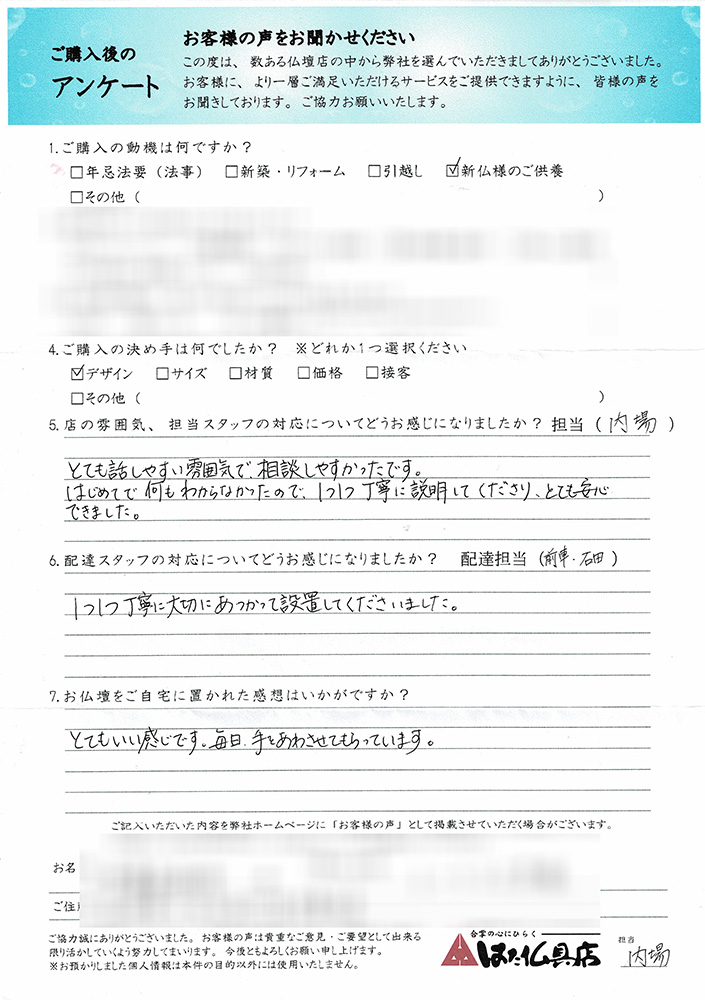 ご購入後の
アンケート
お客様の声をお聞かせください
この度は、数ある仏壇店の中から弊社を選んでいただきましてありがとうございました。
お客様に、より一層ご満足いただけるサービスをご提供できますように、皆様の声を
お聞きしております。ご協力お願いいたします。
1.ご購入の動機は何ですか?
□年忌法要(法事) □新築・リフォーム □引越し ☑新仏様のご供養
□その他( )
4.ご購入の決め手は何でしたか? ※どれか1つ選択ください
☑デザイン □サイズ □材質 □価格 □接客
□その他( )
5.店の雰囲気、担当スタッフの対応についてどうお感じになりましたか?担当(内場)
とても話しやすい雰囲気で、相談しやすかったです。
はじめてで何もわからなかったので、1つ1つ丁寧に説明してくださり、とても安心
できました。
6.配達スタッフの対応についてどうお感じになりましたか? 配達担当(前車・石田)
1つ1つ丁寧に大切にあつかって設置してくださいました。
7.お仏壇をご自宅に置かれた感想はいかがですか?
とてもいい感じです。毎日、手をあわさせてもらっています。
ご記入いただいた内容を弊社ホームページに「お客様の声」として掲載させていただく場合がございます。
お名
ご住
ご協力誠にありがとうございました。お客様の声は貴重なご意見・ご要望として出来る
限り活かしていくよう努力してまいります。今後ともよろしくお願い申し上げます。
※お預かりしました個人情報は本件の目的以外には使用いたしません。
合掌の心にひらく
はた仏具店
担当
内場